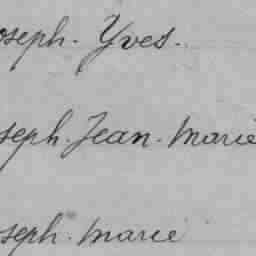 oseph. Yves.
seph. Jean. Marie
seph. Marie